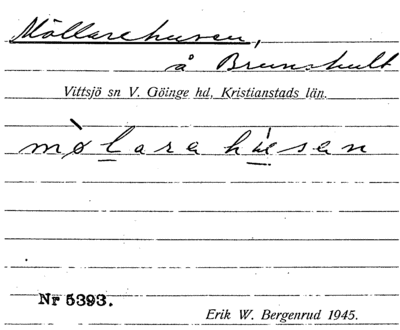 Möllarehusen,
å Brunshult
Vittsjö sn V. Göinge hd, Kristianstads län.
mø̀lara húsen
Nr 5393.
Erik W. Bergenrud 1945.